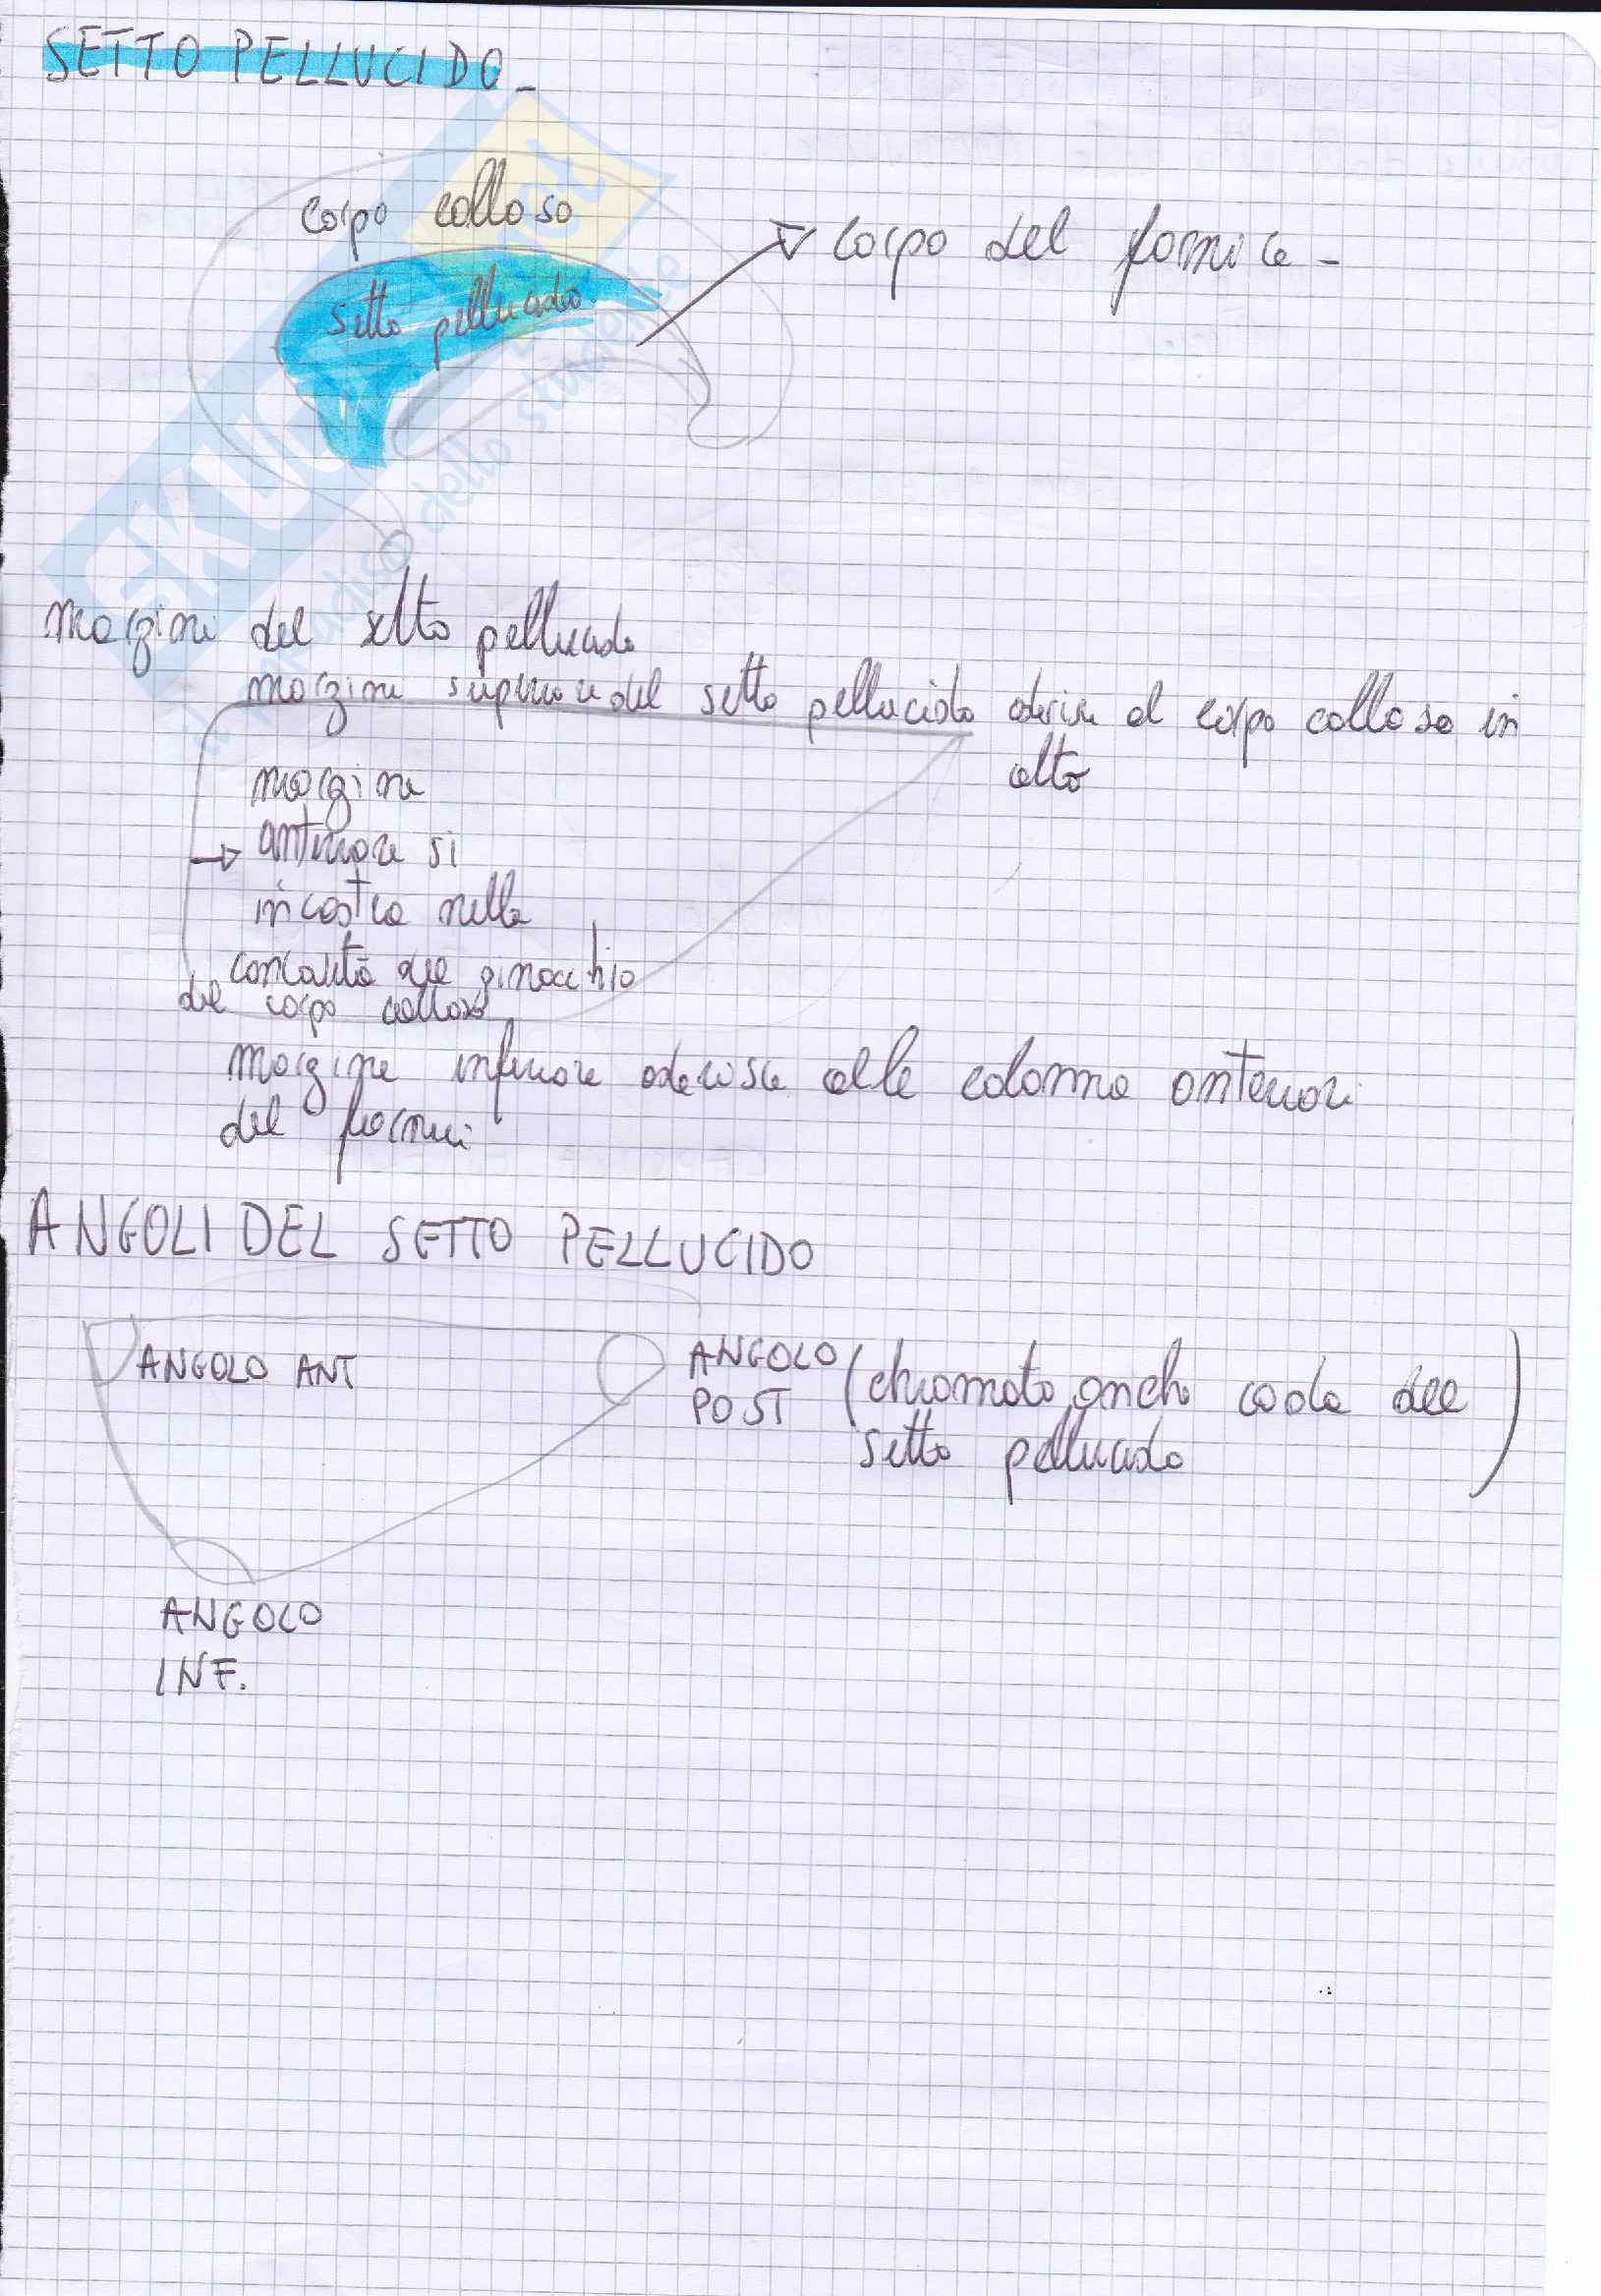 SETTO PELLUCIDO -
corpo colloso
setto pellucido
corpo del fornice -
margini del setto pellucido
margine superiore del setto pellucido aderisce al corpo colloso in
alto
margine
anteriore si
incastra nella
concavità del ginocchio
del corpo colloso
margine inferiore aderisce alle colonne anteriori
del fornice
ANGOLI DEL SETTO PELLUCIDO
ANGOLO ANT
ANGOLO
POST
(chiamato anche coda del
setto pellucido)
ANGOLO
INF.